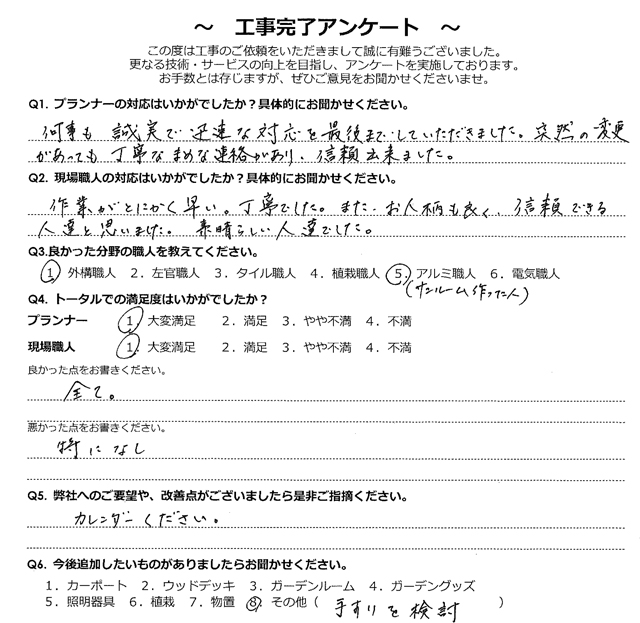 ～ 工事完了アンケート ～
この度は工事のご依頼をいただきまして誠に有難うございました。
更なる技術・サービスの向上を目指し、アンケートを実施しております。
お手数とは存じますが、ぜひご意見をお聞かせくださいませ。
Q1. プランナーの対応はいかがでしたか？具体的にお聞かせください。
何事も 誠実で 迅速な対応を最後までしていただきました。突然の変更
があっても 丁寧なまめな連絡があり、信頼出来ました。
Q2. 現場職人の対応はいかがでしたか？具体的にお聞かせください。
作業がとにかく早い。丁寧でした。また、お人柄も良く、信頼できる
人達と思いました。素晴らしい人達でした。
Q3.良かった分野の職人を教えてください。
1．外構職人 2．左官職人 3．タイル職人 4．植栽職人 5．アルミ職人 6．電気職人
(サンルーム作った人)
Q4. トータルでの満足度はいかがでしたか？
プランナー 1．大変満足 2．満足 3．やや不満 4．不満
現場職人 1．大変満足 2．満足 3．やや不満 4．不満
良かった点をお書きください。
全て。
悪かった点をお書きください。
特になし
Q5. 弊社へのご要望や、改善点がございましたら是非ご指摘ください。
カレンダーください。
Q6. 今後追加したいものがありましたらお聞かせください。
1．カーポート 2．ウッドデッキ 3．ガーデンルーム 4．ガーデングッズ
5．照明器具 6．植栽 7．物置 8．その他（ 手すりを検討 ）